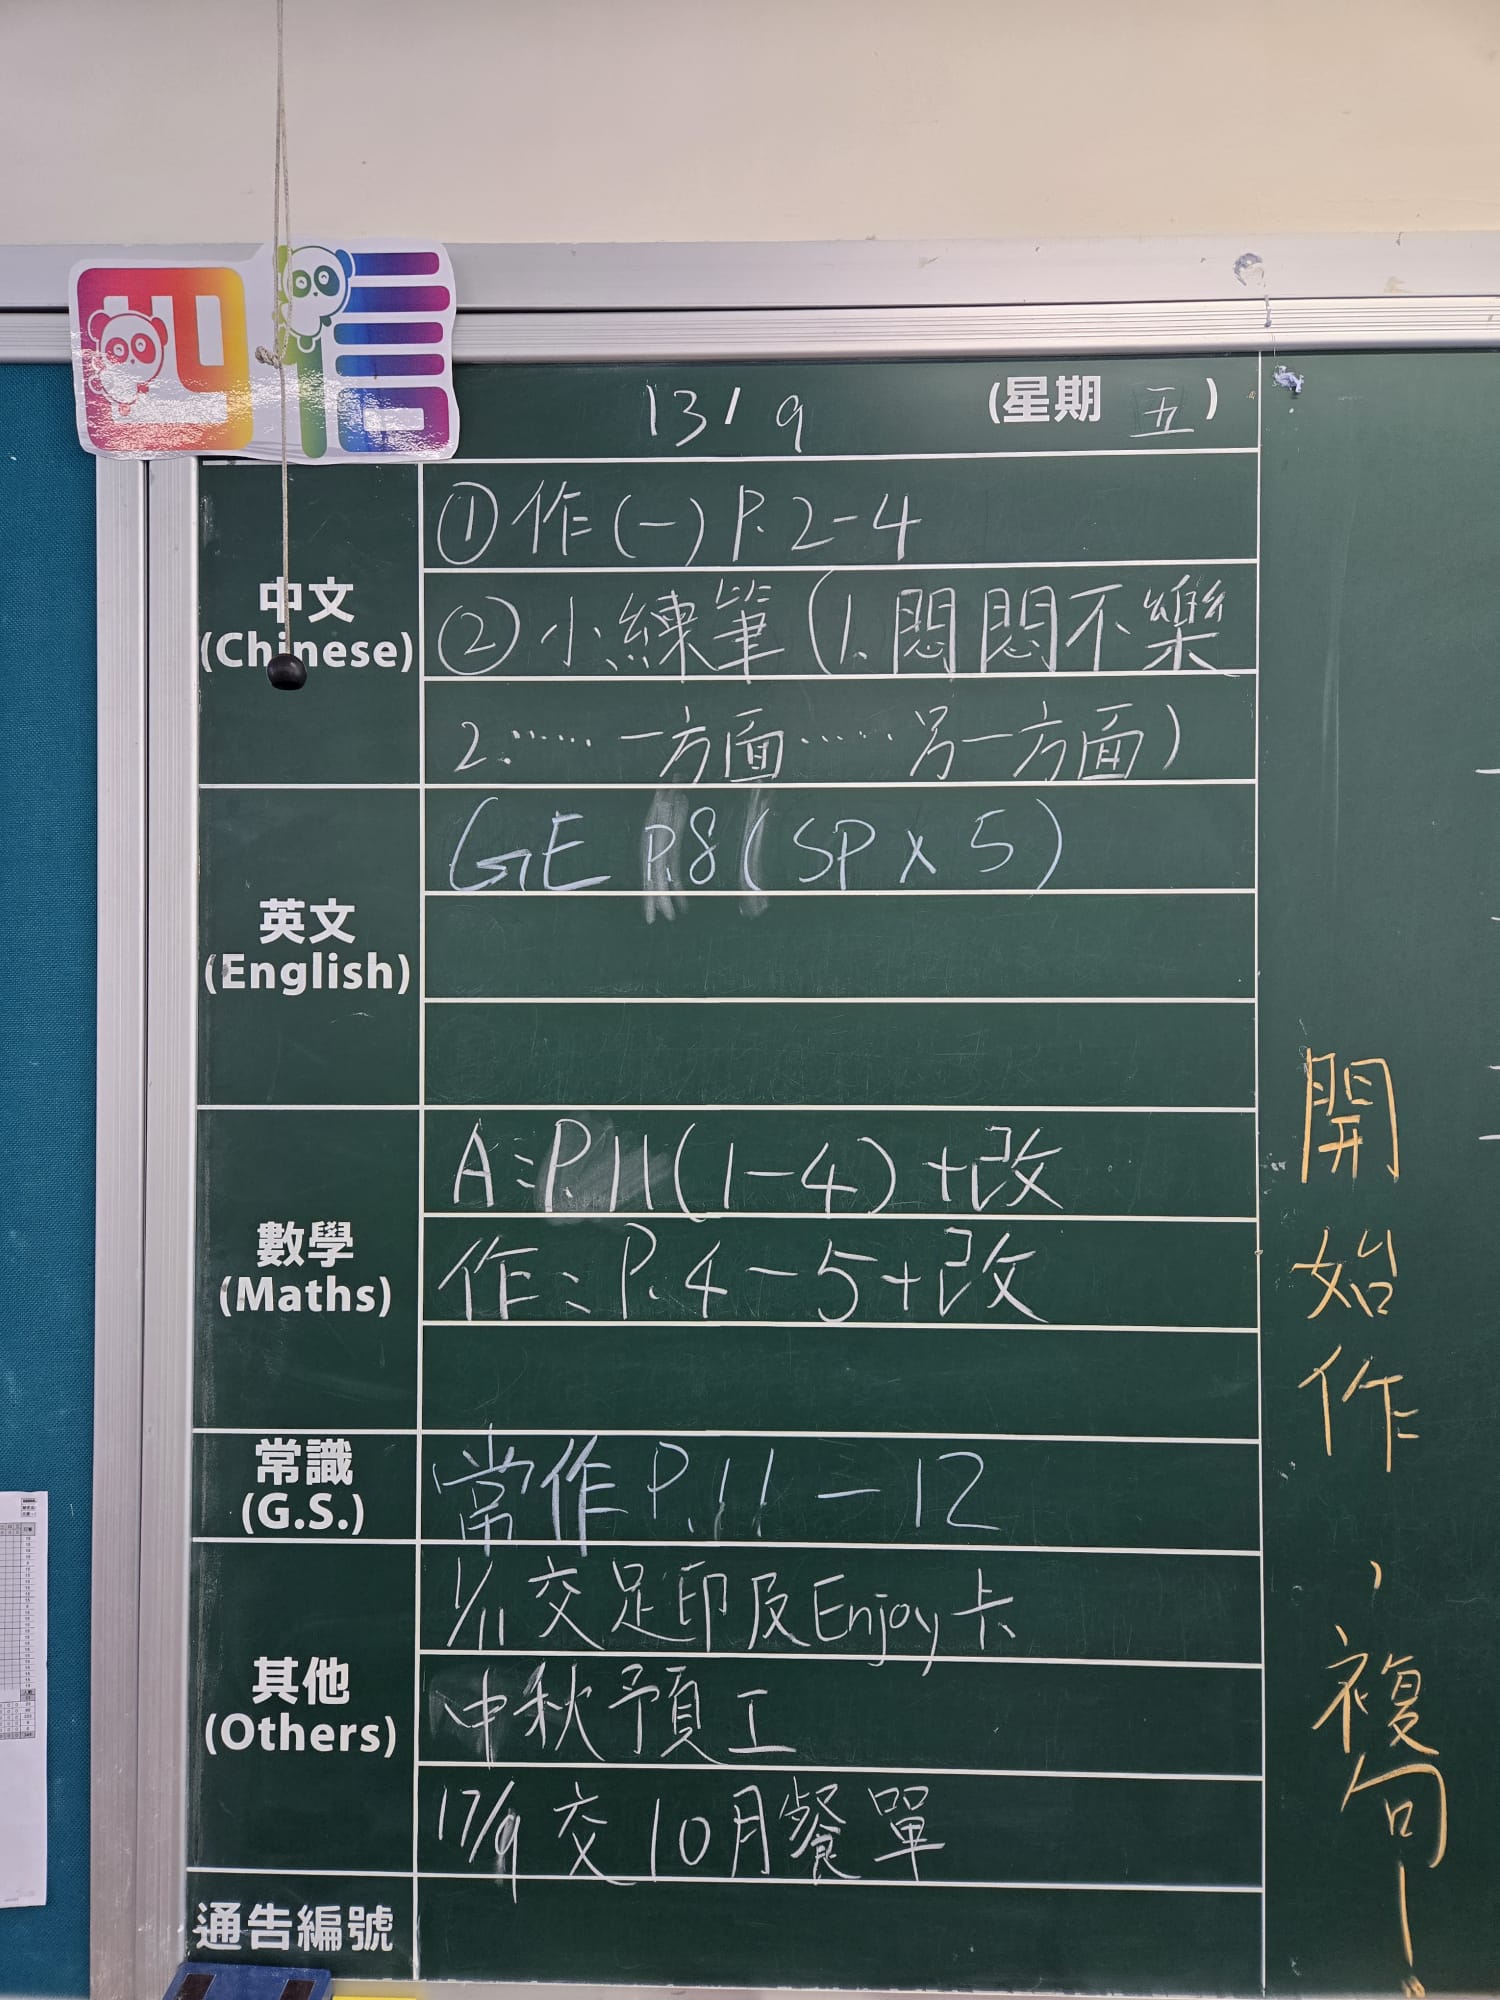 四信
13/9 (星期 五)
中文
(Chinese)
①作(一)P.2-4
②小練筆(1.悶悶不樂
2.……一方面……另一方面)
英文
(English)
GE P.8(SP x 5)
數學
(Maths)
A:P.11(1-4)+改
作:P.4-5+改
常識
(G.S.)
常作P.11-12
其他
(Others)
1/11交足印及Enjoy卡
中秋預工
17/9交10月餐單
通告編號
開始作,複句